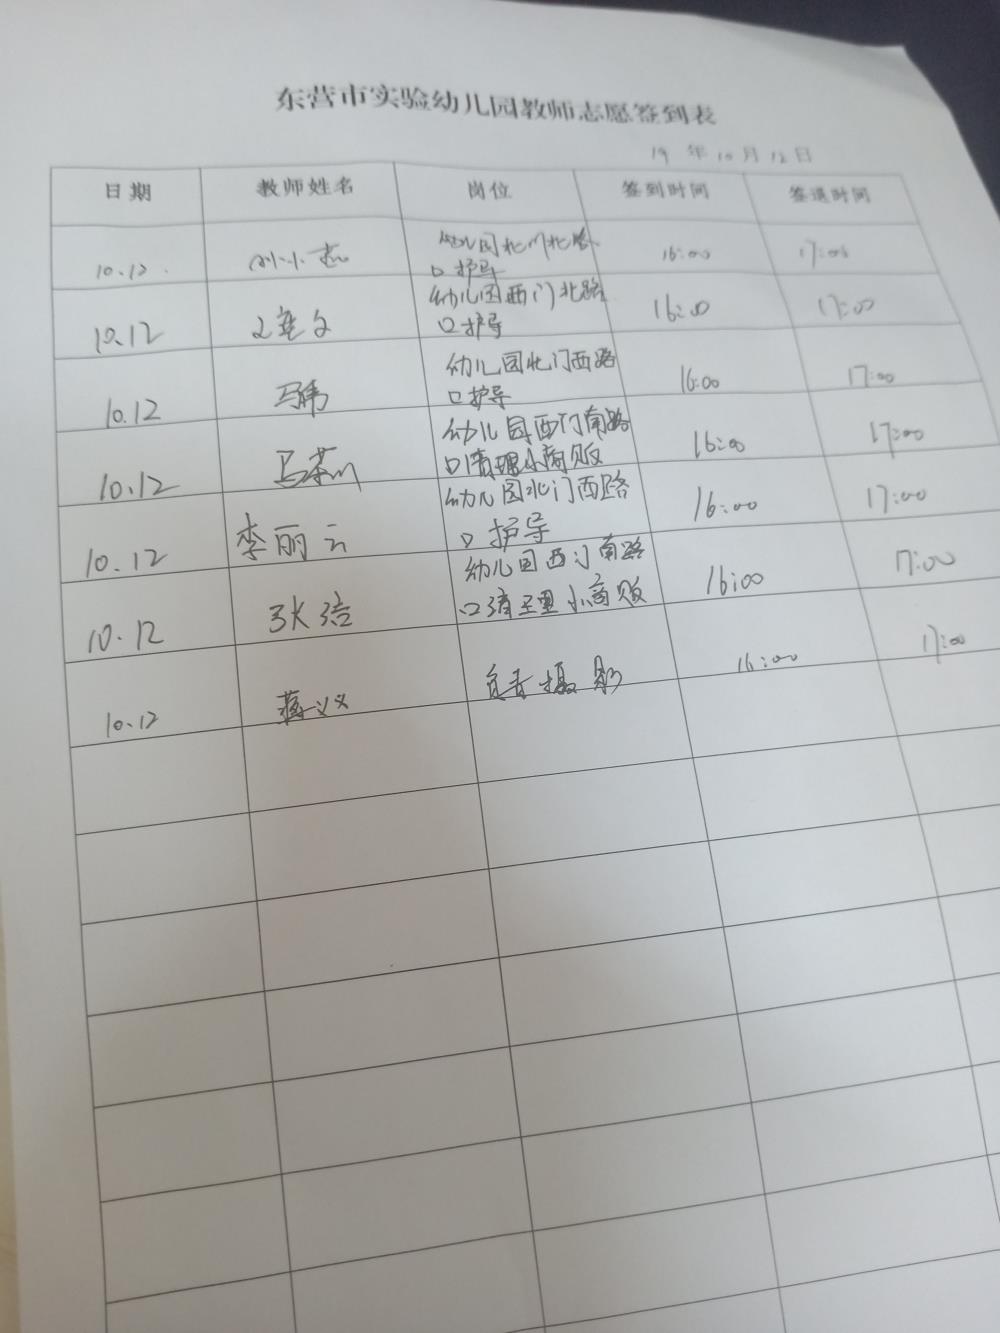 东营市实验幼儿园教师志愿签到表
19 年 10 月 12 日
日期 教师姓名 岗位 签到时间 签退时间
10.12. 刘小志 幼儿园北门北路 16:00 17:00
口护导
10.12 幼儿园西门北路 16:00 17:00
口护导
10.12 马伟 幼儿园北门西路 16:00 17:00
口护导
10.12 幼儿园西门南路 16:00 17:00
口清理小商贩
10.12 李丽云 幼儿园北门西路 16:00 17:00
口护导
10.12 张洁 幼儿园西门南路 16:00 17:00
口清理小商贩
10.12 蒋义义 负责摄影 16:00 17:00